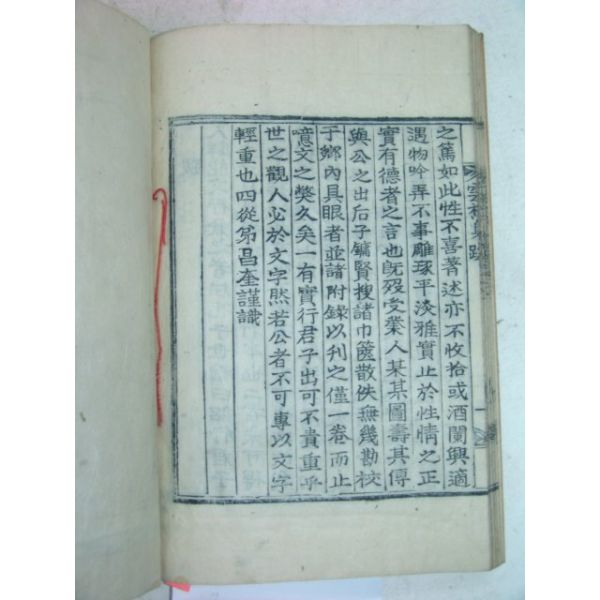 之篤如此性不喜著述亦不收拾或酒闌興適
遇物吟弄不事雕琢平淡雅實止於性情之正
實有德者之言也旣歿受業人某某圖壽其傳
與公之出后子鏞賢搜諸巾篋散佚無幾勘校
于鄉內具眼者並諸附錄以刋之僅一卷而止
噫文之獘久矣一有實行君子出可不貴重乎
世之觀人必於文字然若公者不可專以文字
輕重也四從弟昌奎謹識